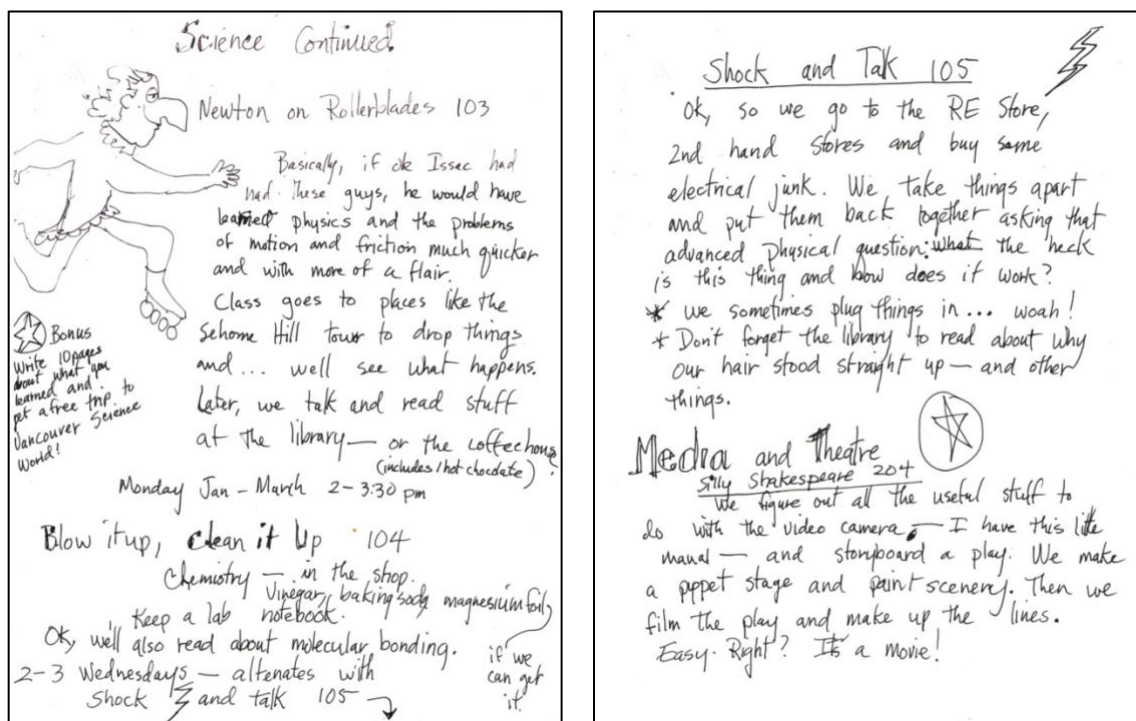 Science Continued.
Newton on Rollerblades 103
Basically, if ole Issac had
had these guys, he would have
learned physics and the problems
of motion and friction much quicker
and with more of a flair.
Class goes to places like the
Sehome Hill tower to drop things
and... well see what happens.
Later, we talk and read stuff
at the library — or the coffeehouse.
(includes 1 hot chocolate)
Monday Jan - March 2-3:30 pm
Bonus
Write 10 pages
about what you
learned and
get a free trip to
Vancouver Science
World!
Blow it up, clean it Up 104
Chemistry — in the shop.
Vinegar, baking soda, magnesium foil,
Keep a lab notebook.
Ok, we'll also read about molecular bonding.
if we
can get
it.
2-3 Wednesdays — altenates with
Shock and talk 105
Shock and Talk 105
Ok, so we go to the RE Store,
2nd hand stores and buy some
electrical junk. We take things apart
and put them back together asking that
advanced physical question: what the heck
is this thing and how does it work?
* we sometimes plug things in... woah!
* Don't forget the library to read about why
our hair stood straight up — and other
things.
Media and Theatre
Silly Shakespeare 204
We figure out all the useful stuff to
do with the video camera — I have this little
manual — and storyboard a play. We make
a puppet stage and paint scenery. Then we
film the play and make up the lines.
Easy. Right? It's a movie!